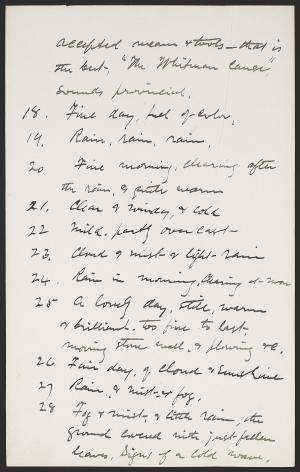 accepted means & tools — that is
the best, "The Whitman cause",
sounds provincial.
18. Fine day, full of color,
19. Rain, rain, rain,
20 Fine morning, clearing after
the rain, & quite warm
21. Clear & windy, & cold
22 Mild. partly over cast —
23. Cloud & mist & light rain
24. Rain in morning, clearing at noon
25 A lovely day, still, warm
& brilliant. too fine to last,
moving stone wall, & plowing &c.
26 Fair day, of cloud & sunshine
27 Rain, & mist & fog.
28 Fog & mist, & little rain, the
ground covered with just-fallen
leaves, Signs of a cold wave.